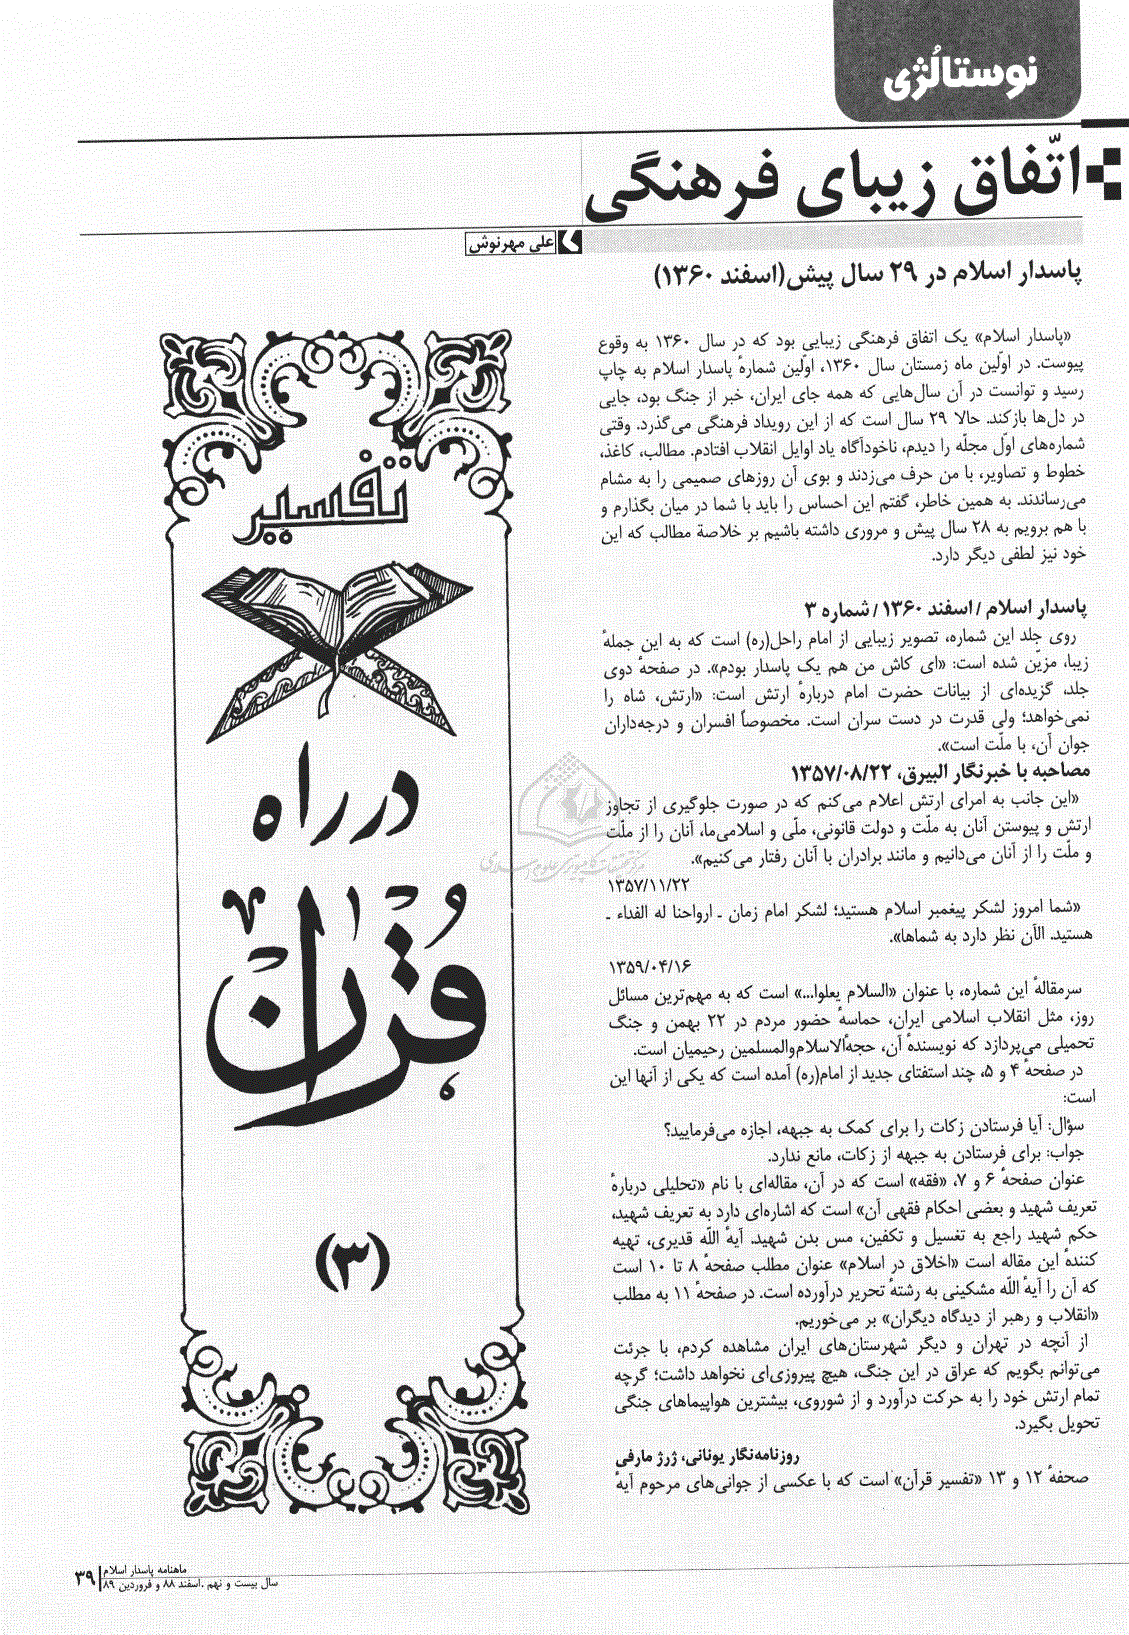 نوستالُژی
اتّفاق زیبای فرهنگی
علی مهرنوش
پاسدار اسلام در ۲۹ سال پیش(اسفند ۱۳۶۰)
«پاسدار اسلام» یک اتفاق فرهنگی زیبایی بود که در سال ۱۳۶۰ به وقوع
پیوست. در اوّلین ماه زمستان سال ۱۳۶۰، اوّلین شمارهٔ پاسدار اسلام به چاپ
رسید و توانست در آن سال‌هایی که همه جای ایران، خبر از جنگ بود، جایی
در دل‌ها بازکند. حالا ۲۹ سال است که از این رویداد فرهنگی می‌گذرد. وقتی
شماره‌های اوّل مجلّه را دیدم، ناخودآگاه یاد اوایل انقلاب افتادم. مطالب، کاغذ،
خطوط و تصاویر، با من حرف می‌زدند و بوی آن روزهای صمیمی را به مشام
می‌رساندند. به همین خاطر، گفتم این احساس را باید با شما در میان بگذارم و
با هم برویم به ۲۸ سال پیش و مروری داشته باشیم بر خلاصهٔ مطالب که این
خود نیز لطفی دیگر دارد.
پاسدار اسلام / اسفند ۱۳۶۰ / شماره ۳
روی جلد این شماره، تصویر زیبایی از امام راحل(ره) است که به این جملهٔ
زیبا، مزیّن شده است: «ای کاش من هم یک پاسدار بودم». در صفحهٔ دوی
جلد، گزیده‌ای از بیانات حضرت امام دربارهٔ ارتش است: «ارتش، شاه را
نمی‌خواهد؛ ولی قدرت در دست سران است. مخصوصاً افسران و درجه‌داران
جوان آن، با ملّت است».
مصاحبه با خبرنگار البیرق، ۱۳۵۷/۰۸/۲۲
«این جانب به امرای ارتش اعلام می‌کنم که در صورت جلوگیری از تجاوز
ارتش و پیوستن آنان به ملّت و دولت قانونی، ملّی و اسلامی‌ما، آنان را از ملّت
و ملّت را از آنان می‌دانیم و مانند برادران با آنان رفتار می‌کنیم».
۱۳۵۷/۱۱/۲۲
«شما امروز لشکر پیغمبر اسلام هستید؛ لشکر امام زمان ـ ارواحنا له الفداء ـ
هستید. الآن نظر دارد به شماها».
۱۳۵۹/۰۴/۱۶
سرمقالهٔ این شماره، با عنوان «السلام یعلوا...» است که به مهم‌ترین مسائل
روز، مثل انقلاب اسلامی ایران، حماسهٔ حضور مردم در ۲۲ بهمن و جنگ
تحمیلی می‌پردازد که نویسندهٔ آن، حجهٔ‌الاسلام‌والمسلمین رحیمیان است.
در صفحهٔ ۴ و ۵، چند استفتای جدید از امام(ره) آمده است که یکی از آنها این
است:
سؤال: آیا فرستادن زکات را برای کمک به جبهه، اجازه می‌فرمایید؟
جواب: برای فرستادن به جبهه از زکات، مانع ندارد.
عنوان صفحهٔ ۶ و ۷، «فقه» است که در آن، مقاله‌ای با نام «تحلیلی دربارهٔ
تعریف شهید و بعضی احکام فقهی آن» است که اشاره‌ای دارد به تعریف شهید،
حکم شهید راجع به تغسیل و تکفین، مس بدن شهید. آیهٔ الله قدیری، تهیه
کنندهٔ این مقاله است «اخلاق در اسلام» عنوان مطلب صفحهٔ ۸ تا ۱۰ است
که آن را آیهٔ الله مشکینی به رشتهٔ تحریر درآورده است. در صفحهٔ ۱۱ به مطلب
«انقلاب و رهبر از دیدگاه دیگران» بر می‌خوریم.
از آنچه در تهران و دیگر شهرستان‌های ایران مشاهده کردم، با جرئت
می‌توانم بگویم که عراق در این جنگ، هیچ پیروزی‌ای نخواهد داشت؛ گرچه
تمام ارتش خود را به حرکت درآورد و از شوروی، بیشترین هواپیماهای جنگی
تحویل بگیرد.
روزنامه‌نگار یونانی، ژرژ مارفی
صحفهٔ ۱۲ و ۱۳ «تفسیر قرآن» است که با عکسی از جوانی‌های مرحوم آیهٔ
تفسیر
در راه
قرآن
(۳)
ماهنامه پاسدار اسلام
سال بیست و نهم .اسفند ۸۸ و فروردین ۸۹
۳۹